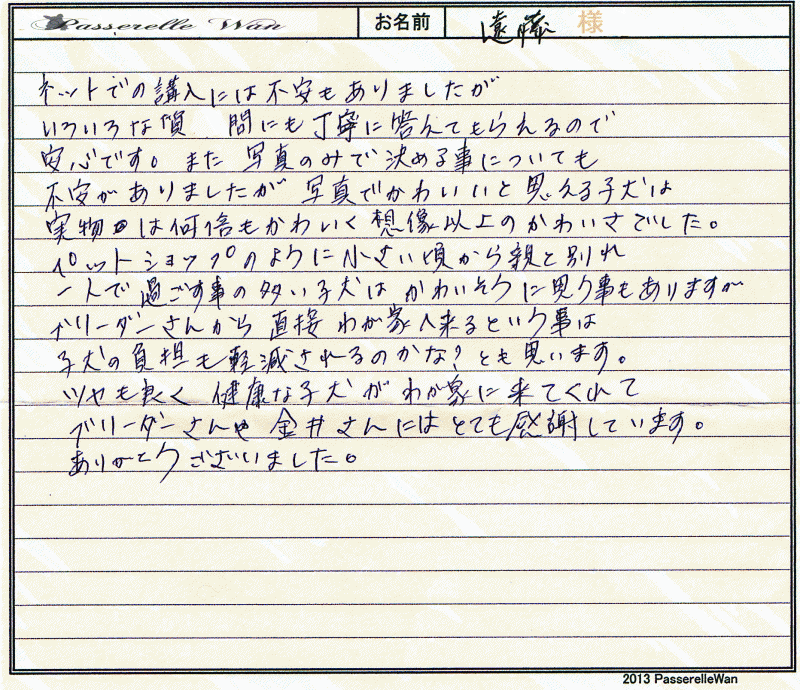 Passerelle Wan お名前 遠藤 様
ネットでの講入には不安もありましたが
いろいろな質問にも丁寧に答えてもらえるので
安心です。また 写真のみで決める事についても
不安がありましたが 写真でかわいいと思える子犬は
実物は何倍もかわいく想像以上のかわいさでした。
ペットショップのように小さい頃から親と別れ
一人で過ごす事の多い子犬はかわいそうに思う事もありますが
ブリーダーさんから直接わが家へ来るという事は
子犬の負担も軽減されるのかな?とも思います。
ツヤも良く 健康な子犬がわが家に来てくれて
ブリーダーさんや金井さんにはとても感謝しています。
ありがとうございいました。
2013 PasserelleWan